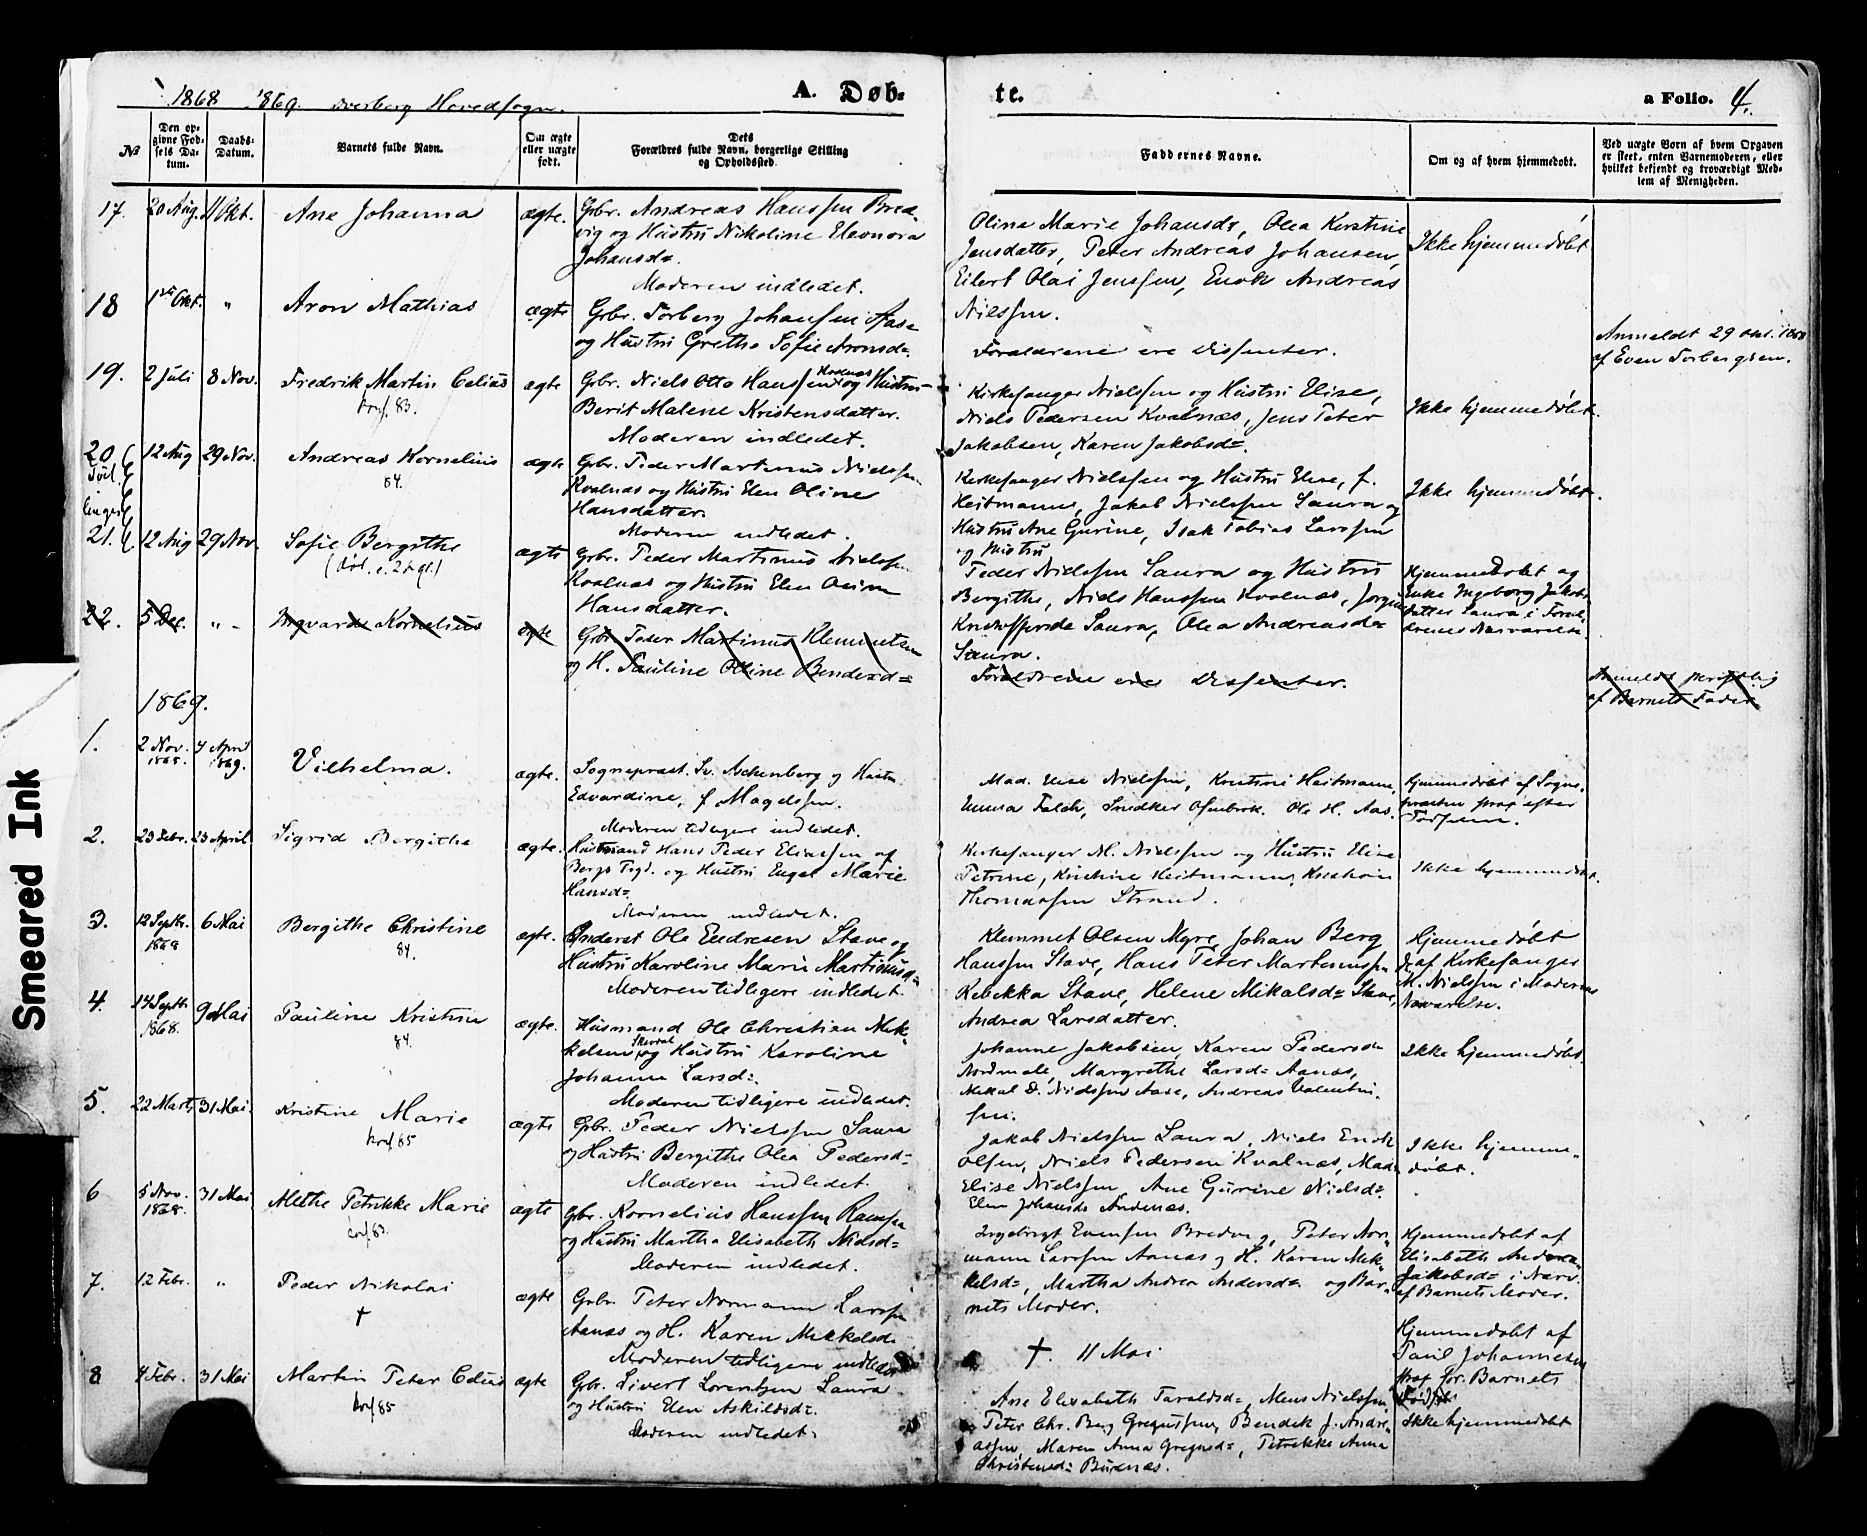 1868 1869. Dverberg Hovedsogn.
A. Døb-
te.
a Folio. 4.
№
Den op-
givne Fød-
sels Da-
tum.
Daabs-
Datum.
Barnets fulde Navn.
Om ægte
eller uægte
født.
Dets
Forældres fulde Navn, borgerlige Stilling
og Opholdssted.
Faddernes Navne.
Om og af hvem hjemmedøbt.
Ved uægte Børn af hvem Opgaven
er skeet, enten Barnemoderen, eller
hvilket bekjendt og troværdigt Med-
lem af Menigheden.
17. 20 Aug. 11 Okt. Ane Johanna ægte. Gbr. Andreas Hanssen Bred-
vig og Hustru Nikoline Eleonora
Johansd=.
Moderen indledet.
Olina Marie Johansdr, Olea Kerstine
Jensdatter, Peter Andreas Johansen,
Eilert Olai Jenssen, Enok Andreas
Nilssen.
Ikke hjemmedøbt
18 1ste Okt. " Aron Mathias ægte Gbr. Torberg Johanssen Aase
og Hustru Grethe Sofie Aronsd=
Forældrene ere Dissenter.
Anmeldt 29 Okt. 1868
af Even Torbergsen.
19. 2 Juli 8 Nov. Fredrik Martin Celius
konf. 83.
ægte Gbr. Niels Otto Hanssen og Hustru
Berit Malene Kristensdatter.
Moderen indledet.
Kirkesanger Nielssen og Hustru Elise,
Niels Pedersen Kvalnæs, Jens Peter
Jakobsen, Karen Jakobsd=.
Ikke hjemmedøbt.
20 Tvil-
linger
12 Aug 29 Nov. Andreas Kornelius
84.
ægte Gbr. Peder Martinus Nielssen
Kvalnæs og Hustru Elen Oline
Hansdatter.
Moderen indledet.
Kirkesanger Nielssen og Hustru Elise, f.
Heitmann, Jakob Nielssen Saura og
Hustru Ane Gurine, Isak Tobias Larssen
og Hustru
Ikke hjemmedøbt.
21. 12 Aug 29 Nov. Sofie Bergithe
ægte Gbr. Peder Martinus Nielssen
Kvalnæs og Hustru Elen Oline
Hansdatter.
Peder Nielssen Saura og Hustru
Bergithe, Niels Hanssen Kvalnæs, Jørgine
Kristoffersd= Saura, Olea Andreasd=
Saura.
Hjemmedøbt og
Enke Ingeborg Jakobs-
datter Saura i Foræl-
drenes Nærværelse.
22. 5 Dec. " - Ingvarda Kornelius ægte Gbr. Peder Martinus Klemmetsen
og H. Pauline Oline Bendixd=
Forældrene ere Dissenter.
Anmeldt skriftlig
af Barnets Fader.
1869.
1. 2 Nov.
1868.
4 April
1869.
Vilhelma. ægte. Sognepræst. Sv. Aschenberg og Hustru
Edvardine, f Magelssen.
Moderen tidligere indledet.
Mad. Elise Nielssen, Kristine Heitmann,
Emma Falch, Snedker Ofenbrok. Ole H. Aas.
Hjemmedøbt af Sogne-
præsten strax efter
Fødselen.
2. 23 Febr. 23 April Sigrid Bergithe ægte. Husmand Hans Peder Eliassen af
Bergs Prgd. og Hustru Engel Marie
Hansd=
Moderen indledet.
Kirkesanger M. Nielssen og Hustru Elise
Petrine, Kristine Heitmann, Kristian
Thomassen Strand.
Ikke hjemmedøbt.
3. 12 Septbr.
1868
6 Mai Bergithe Christine
84.
ægte. Inderst Ole Endresen Stave og
Hustru Karoline Marie Martinusd=
Moderen tidligere indledet.
Klemmet Olsen Myre, Johan Berg
Hanssen Stave, Hans Peter Martinussen
Rebekka Stave, Helene Mikalsd= Stave,
Andrea Larsdatter.
Hjemmedøbt
af Kirkesanger
M. Nielssen i Moderens
Nærværelse.
4. 14 Septbr.
1868.
9 Mai Pauline Kristine
84.
ægte. Husmand Ole Christian Mik-
kelsen og Hustru Karoline
Johanna Larsd=.
Moderen tidligere indledet.
Johanne Jakobsen, Karen Pedersd=
Nordmæle, Margrethe Larsd= Aanæs,
Mikal D. Nielssen Aase, Andreas Valentin-
sen.
Ikke hjemmedøbt
5. 22 Marts 31 Mai. Kristine Marie
konf 85
ægte Gbr. Peder Nielssen Saura
og Hustru Bergithe Olea Pedersd=
Moderen indledet.
Jakob Nielssen Saura, Niels Enok
Olsen, Niels Pedersen Kvalnæs, Mad.
Elise Nielssen, Ane Gurine Nielsd=
Elen Johansd= Andenæs.
Ikke hjemme-
døbt.
6 5 Nov.
1868.
31 Mai Alethe Petrikke Marie
konf 83.
ægte Gbr. Kornelius Hanssen Ramsa
og Hustru Martha Elisabeth Nielsd=
Moderen indledet.
Ingebrigt Evensen Bredvig, Peter Nor-
mann Larssen Aanæs og H. Karen Mik-
kelsd=, Martha Andrea Andersd= og Bar-
nets Moder.
Hjemmedøbt af
Elisabeth Andrea
Jakobsd= i Nærv.
af Barnets Moder.
7. 12 Febr. " Peder Nikolai
†
ægte Gbr. Peter Normann Larssen
Aanæs og H. Karen Mikkelsd=
Moderen tidligere indledet
†. 11 Mai
Hjemmedøbt af
Paul Johannesen
strax før Barnets
Død
8 4 Febr. 31 Mai Martin Peter Celius
konf 85
ægte Gbr. Sivert Lorentzen Saura
og Hustru Elen Askildsd=.
Moderen indledet.
Ane Elisabeth Taraldsd=, Mons Nielssen,
Peter Chr. Berg Gregussen, Bendik J. Andre-
assen, Maren Anna Gregusd=, Petrikke Anna
Christensd= Buknæs.
Ikke hjemmedøbt
Smeared Ink